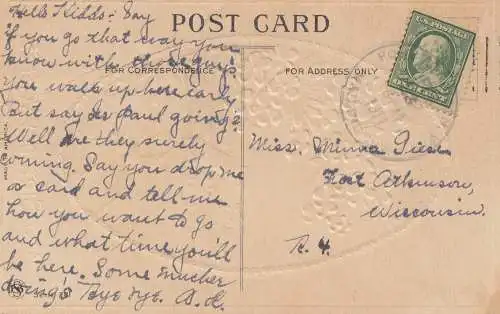 POST CARD
FOR CORRESPONDENCE
FOR ADDRESS ONLY
Hello Kiddo: Say
if you go that way you
know with those guys
you walk up here early
But say is Paul going?
Well are they surely
coming. Say you drop me
a card and tell me
how you want to go
and what time you'll
be here. Some
doing's Bye Bye. A. K.
U.S. POSTAGE
Miss. Minna
Fort Atkinson,
Wisconsin.
R. 4.